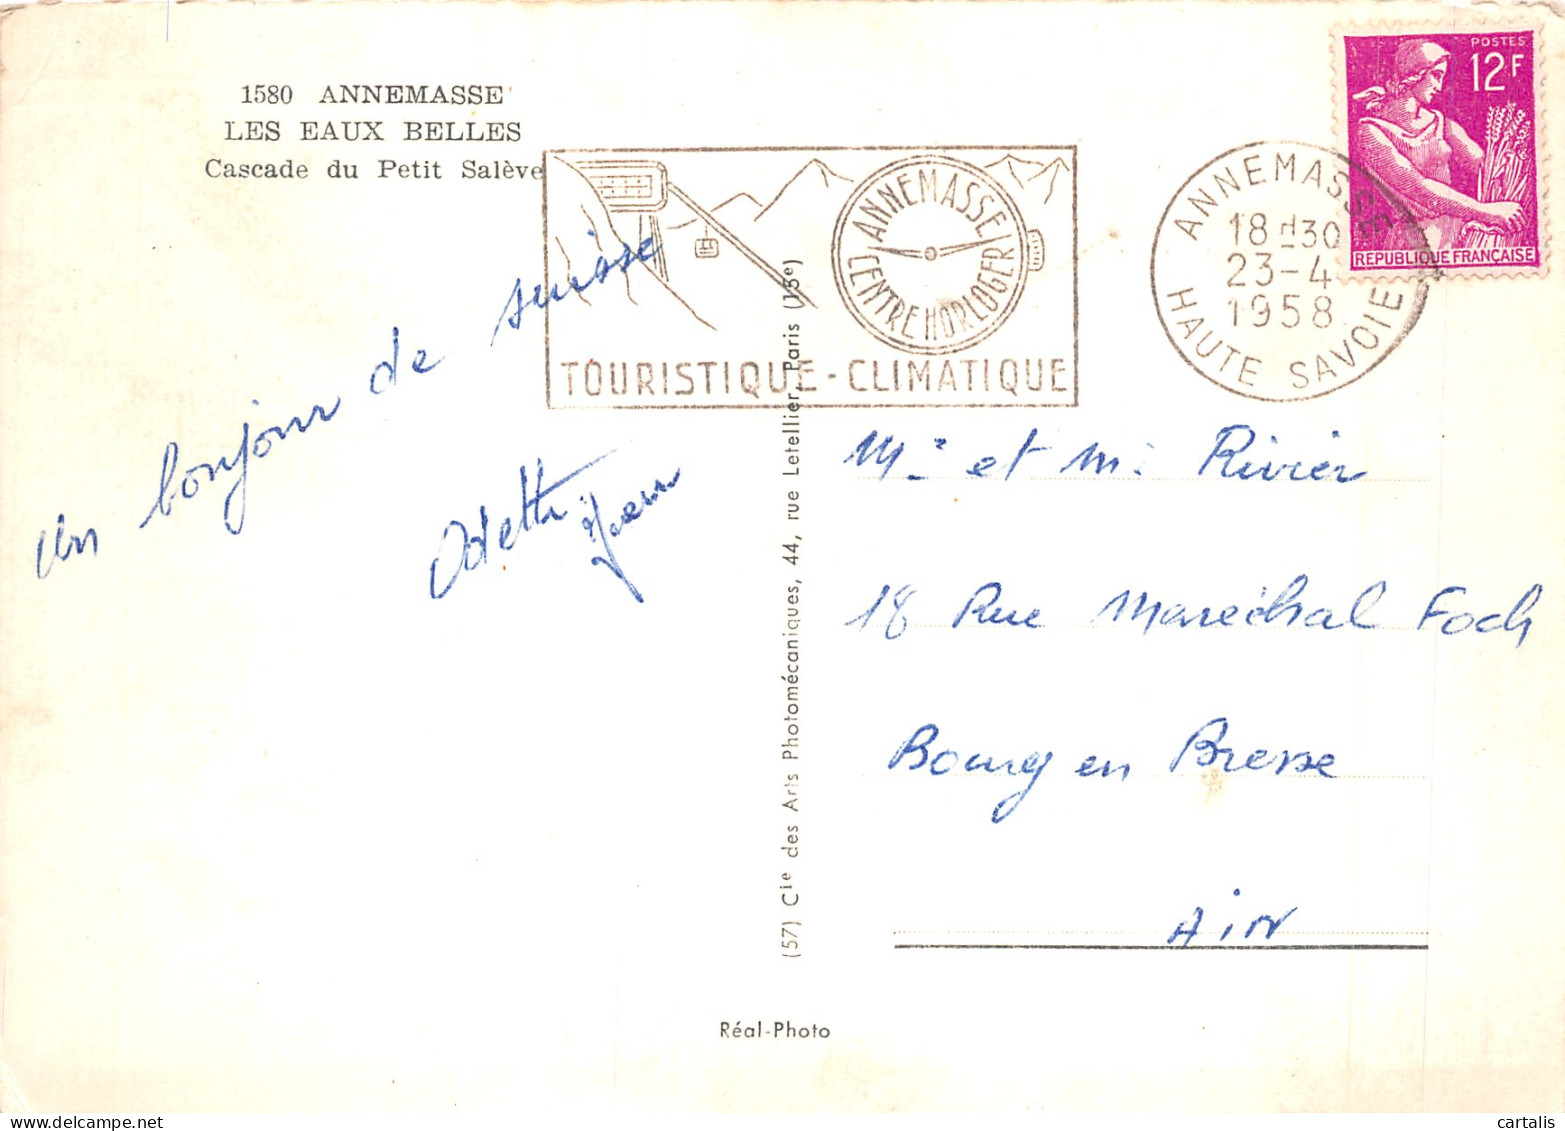 1580 ANNEMASSE
LES EAUX BELLES
Cascade du Petit Salève
ANNEMASSE
CENTRE HORLOGER
TOURISTIQUE - CLIMATIQUE
ANNEMASSE
18H30
23-4
1958
HAUTE SAVOIE
POSTES
12F
REPUBLIQUE FRANÇAISE
un bonjour de suisse
Odette
Jean
(57) Cie des Arts Photomécaniques, 44, rue Letellier, Paris (15e)
Mr et Mr Rivier
18 Rue Maréchal Foch
Bourg en Bresse
AiN
Réal-Photo
cartalis